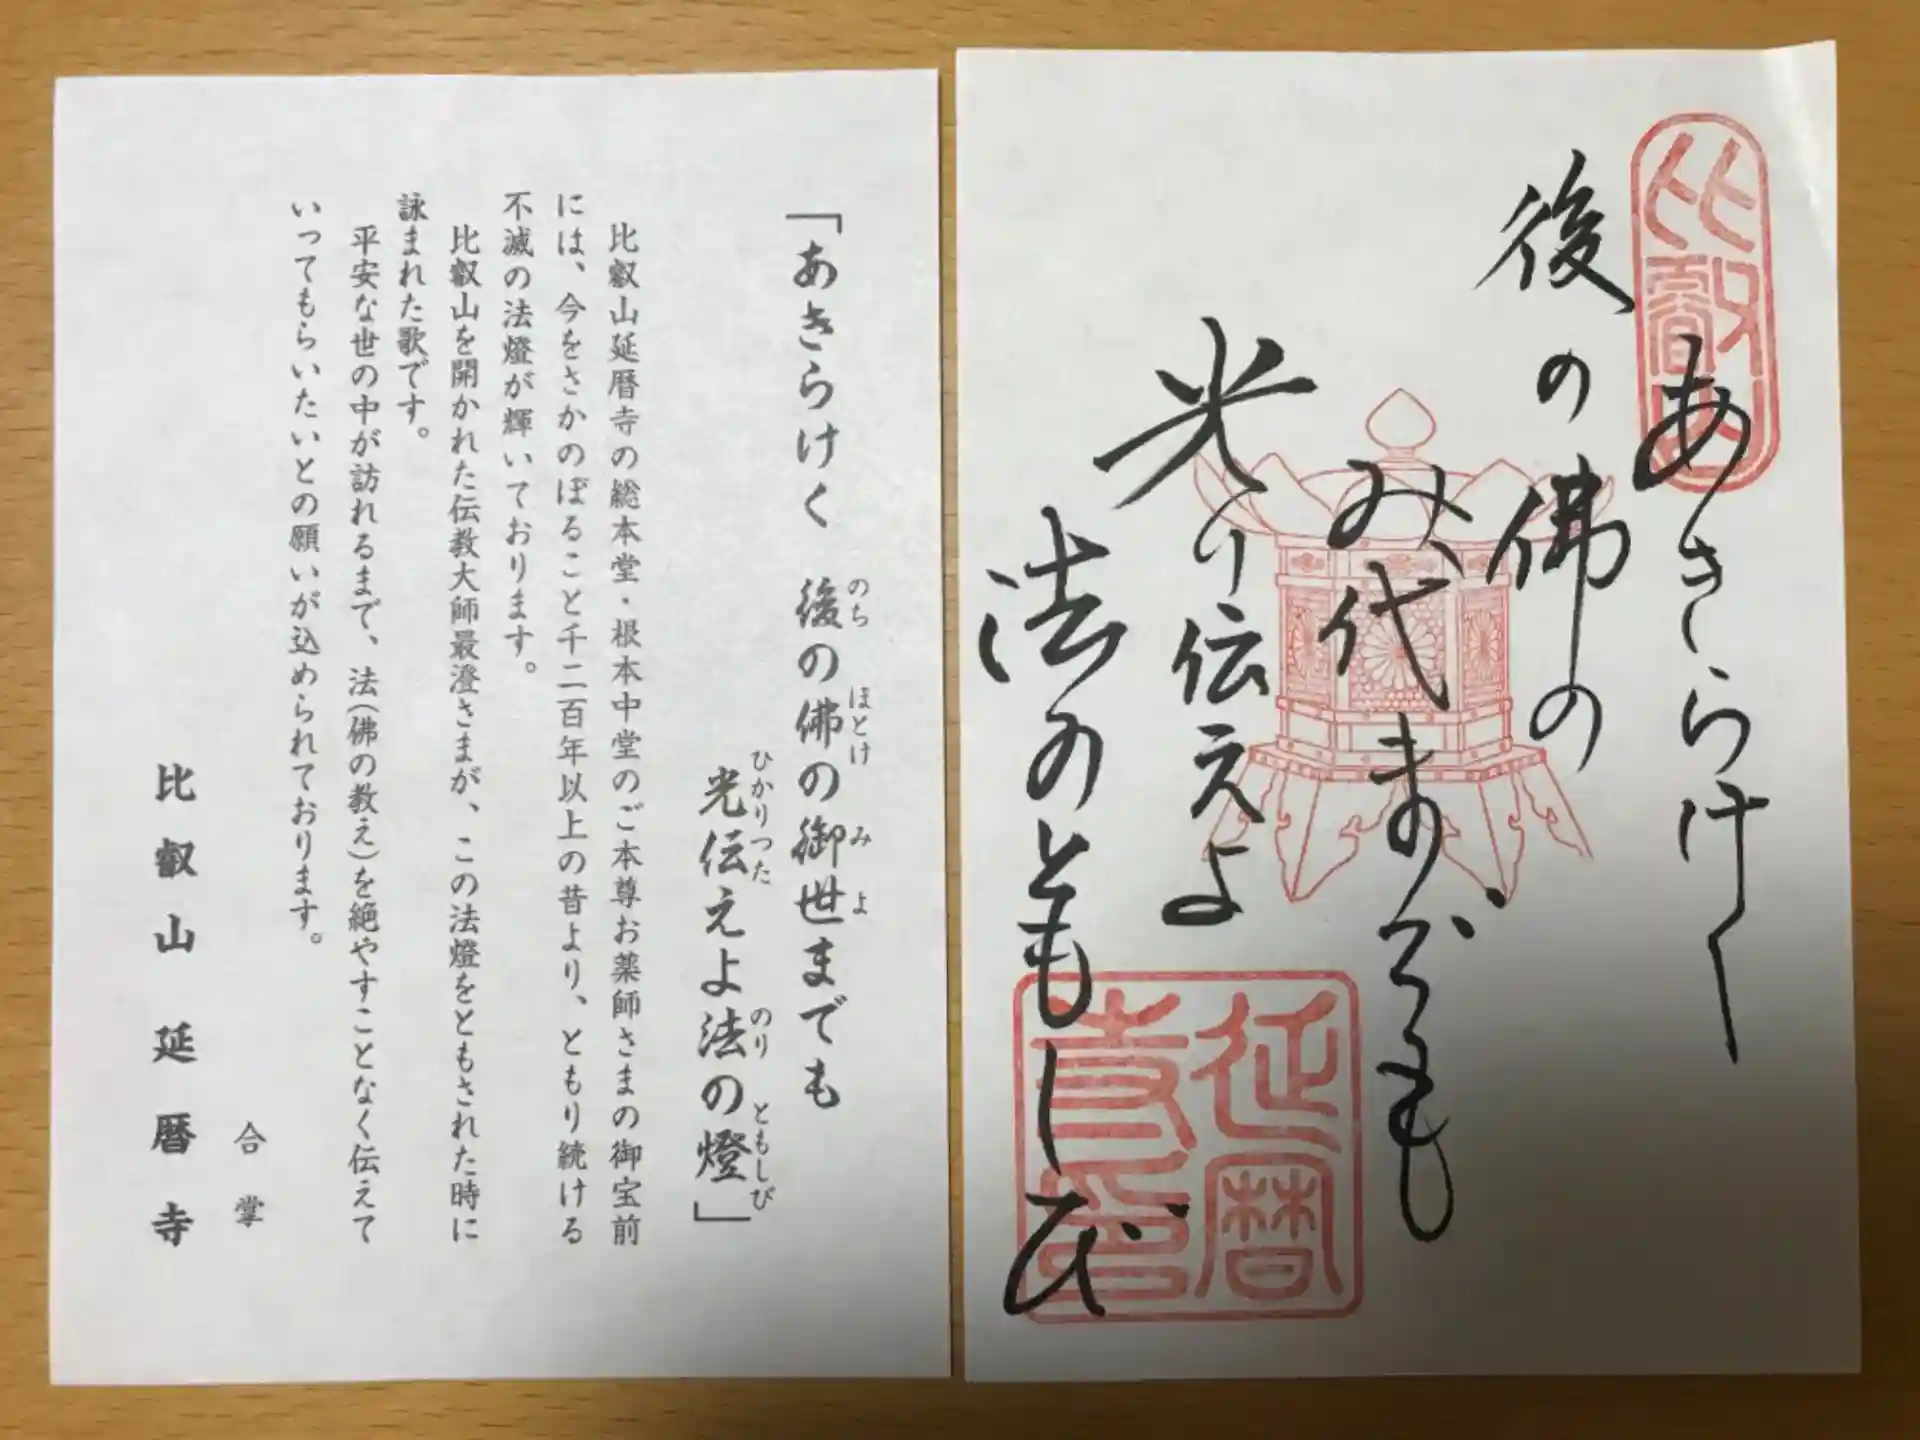 比叡山
あきらけく
後の佛の
み代までも
光り伝えよ
法のともしび
延暦
寺印
「あきらけく　後の佛の御世までも
のち
ほとけ
み
よ
光伝えよ法の燈」
ひかりつた
のり
ともしび
比叡山延暦寺の総本堂・根本中堂のご本尊お薬師さまの御宝前
には、今をさかのぼること千二百年以上の昔より、ともり続ける
不滅の法燈が輝いております。
比叡山を開かれた伝教大師最澄さまが、この法燈をともされた時に
詠まれた歌です。
平安な世の中が訪れるまで、法(佛の教え)を絶やすことなく伝えて
いってもらいたいとの願いが込められております。
合掌
比叡山　延暦寺